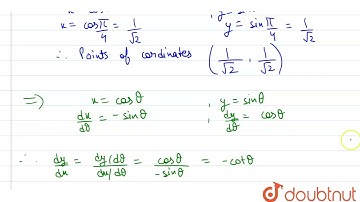 x = cos π/4 = 1/√2 , y = sin π/4 = 1/√2
∴ Points of cordinates (1/√2 , 1/√2)
⇒ x = cosθ , y = sinθ
dx/dθ = -sinθ , dy/dθ = cosθ
∴ dy/dx = dy/dθ / dx/dθ = cosθ / -sinθ = -cotθ
doubtnut